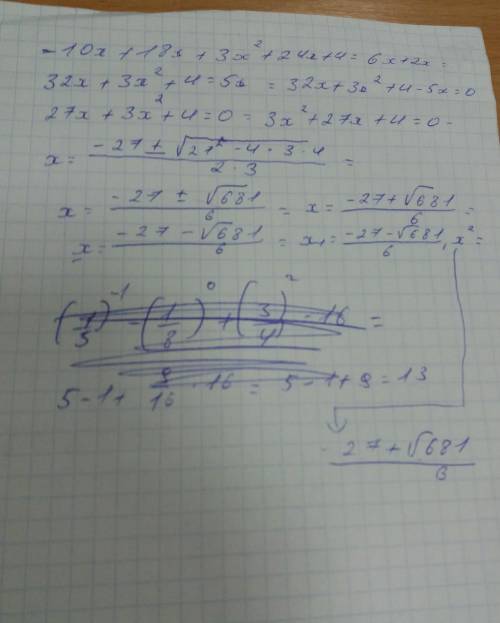 -10x + 18x + 3x² + 24x + 4 = 6x + 2x =
32x + 3x² + 4 = 5x = 32x + 3x² + 4 - 5x = 0
27x + 3x² + 4 = 0 = 3x² + 27x + 4 = 0 -
x = (-27 ± √(27² - 4 · 3 · 4)) / (2 · 3) =
x = (-27 ± √681) / 6 = x = (-27 + √681) / 6 =
x = (-27 - √681) / 6 = x₁ = (-27 - √681) / 6, x² =
(1/5)⁻¹ - (1/8)⁰ + (3/4)² · 16 =
5 - 1 + 9/16 · 16 = 5 - 1 + 9 = 13
(-27 + √681) / 6